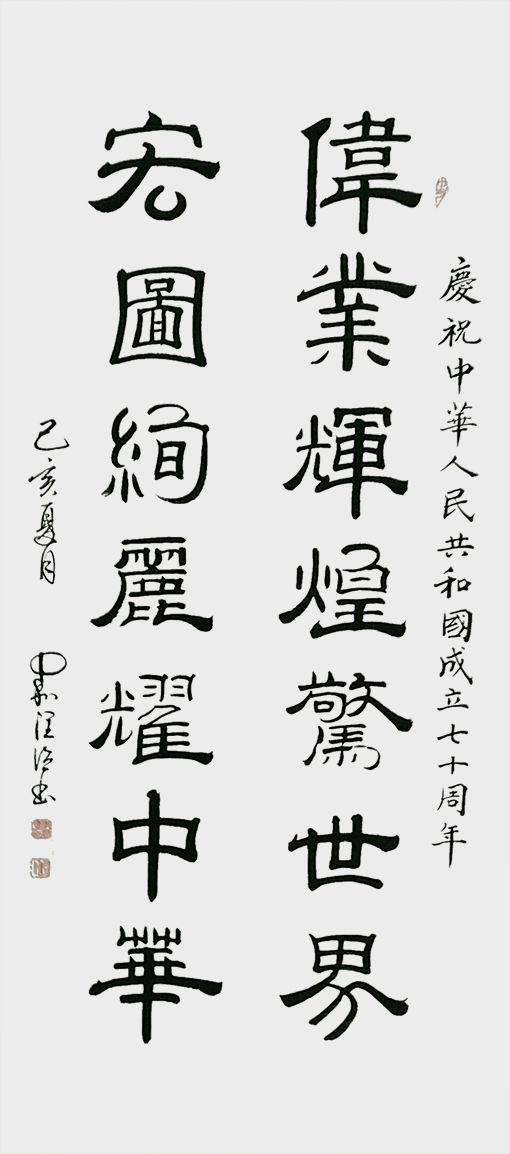 慶祝中華人民共和國成立七十周年
偉業輝煌驚世界
宏圖絢麗耀中華
己亥夏月
書